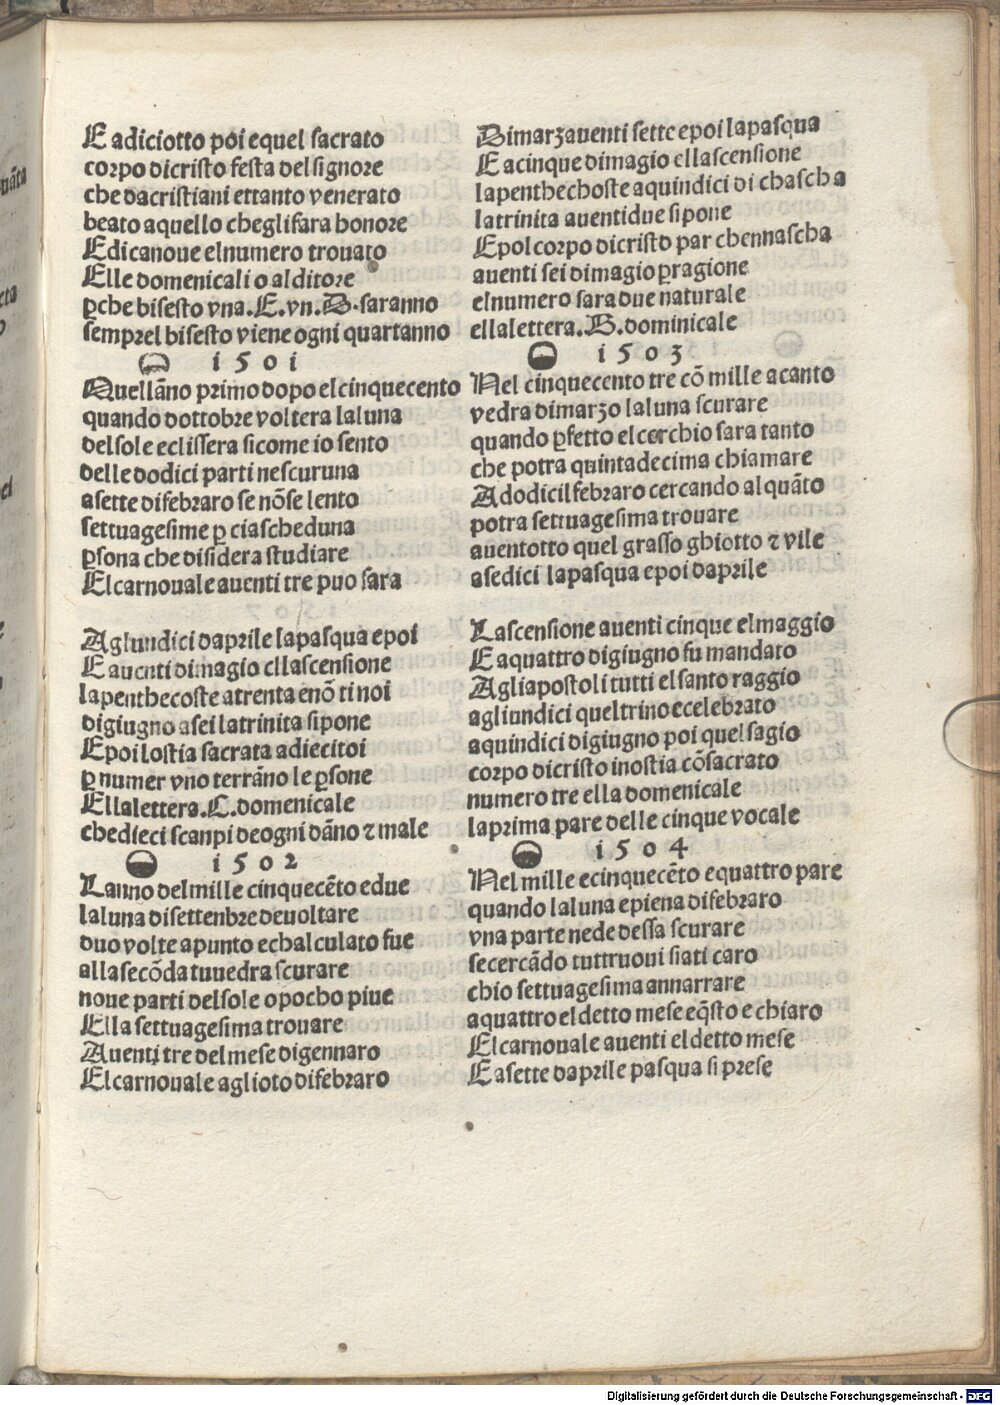 E adiciotto poi equel sacrato
corpo dicristo festa del signore
che dacristiani ettanto venerato
beato aquello cheglifara honore
Edicanoue elnumero trouato
Elle domenicali o alditore
ꝑche bisesto vna.E.vn.D.saranno
semprel bisesto viene ogni quartanno
1 5 0 1
Quellãno primo dopo elcinquecento
quando dottobre voltera laluna
delsole eclissera sicome io sento
delle dodici parti nescuruna
asette difebraro se nõse lento
settuagesime ꝑ ciascheduna
ꝑsona che disidera studiare
Elcarnouale auenti tre puo sara
Aglundici daprile lapasqua epoi
E auenti dimagio ellascensione
lapenthecoste atrenta enõ ti noi
digiugno asei latrinita sipone
Epoi lostia sacrata adiecitoi
ꝑ numer vno terrãno le ꝑsone
Ellalettera.C.domenicale
chedieci scanpi deogni dãno ⁊ male
1 5 0 2
Lanno delmille cinquecẽto edue
laluna disettenbre deuoltare
duo volte apunto echalculato fue
alla secõda tuuedra scurare
noue parti delsole opocho piue
Ella settuagesima trouare
Auenti tre del mese digennaro
Elcarnouale aglioto difebraro
Dimarzauenti sette epoi lapasqua
E acinque dimagio ellascensione
lapenthechoste aquindici di chascha
latrinita auentidue sipone
Epolcorpo dicristo par chennascha
auenti sei dimagio ꝑragione
elnumero sara due naturale
ellalettera.B.dominicale
1 5 0 3
Nel cinquecento tre cõ mille acanto
vedra dimarzo laluna scurare
quando ꝑfetto elcerchio sara tanto
che potra quintadecima chiamare
Adodicilfebraro cercando alquãto
potra settuagesima trouare
auentotto quel grasso ghiotto ⁊ vile
asedici lapasqua epoi daprile
Lascensione auenti cinque elmaggio
E aquattro digiugno fu mandato
Agliapostoli tutti elsanto raggio
agliundici queltrino ecelebrato
aquindici digiugno poi quelsagio
corpo dicristo inostia cõsacrato
numero tre ella domenicale
laprima pare delle cinque vocale
1 5 0 4
Nelmille ecinquecẽto equattro pare
quando laluna epiena difebraro
vna parte nede dessa scurare
secercãdo tuttruoui siati caro
chio settuagesima annarrare
aquattro eldetto mese eq̃sto e chiaro
Elcarnouale auenti eldetto mese
E asette daprile pasqua si prese
Digitalisierung gefördert durch die Deutsche Forschungsgemeinschaft - DFG